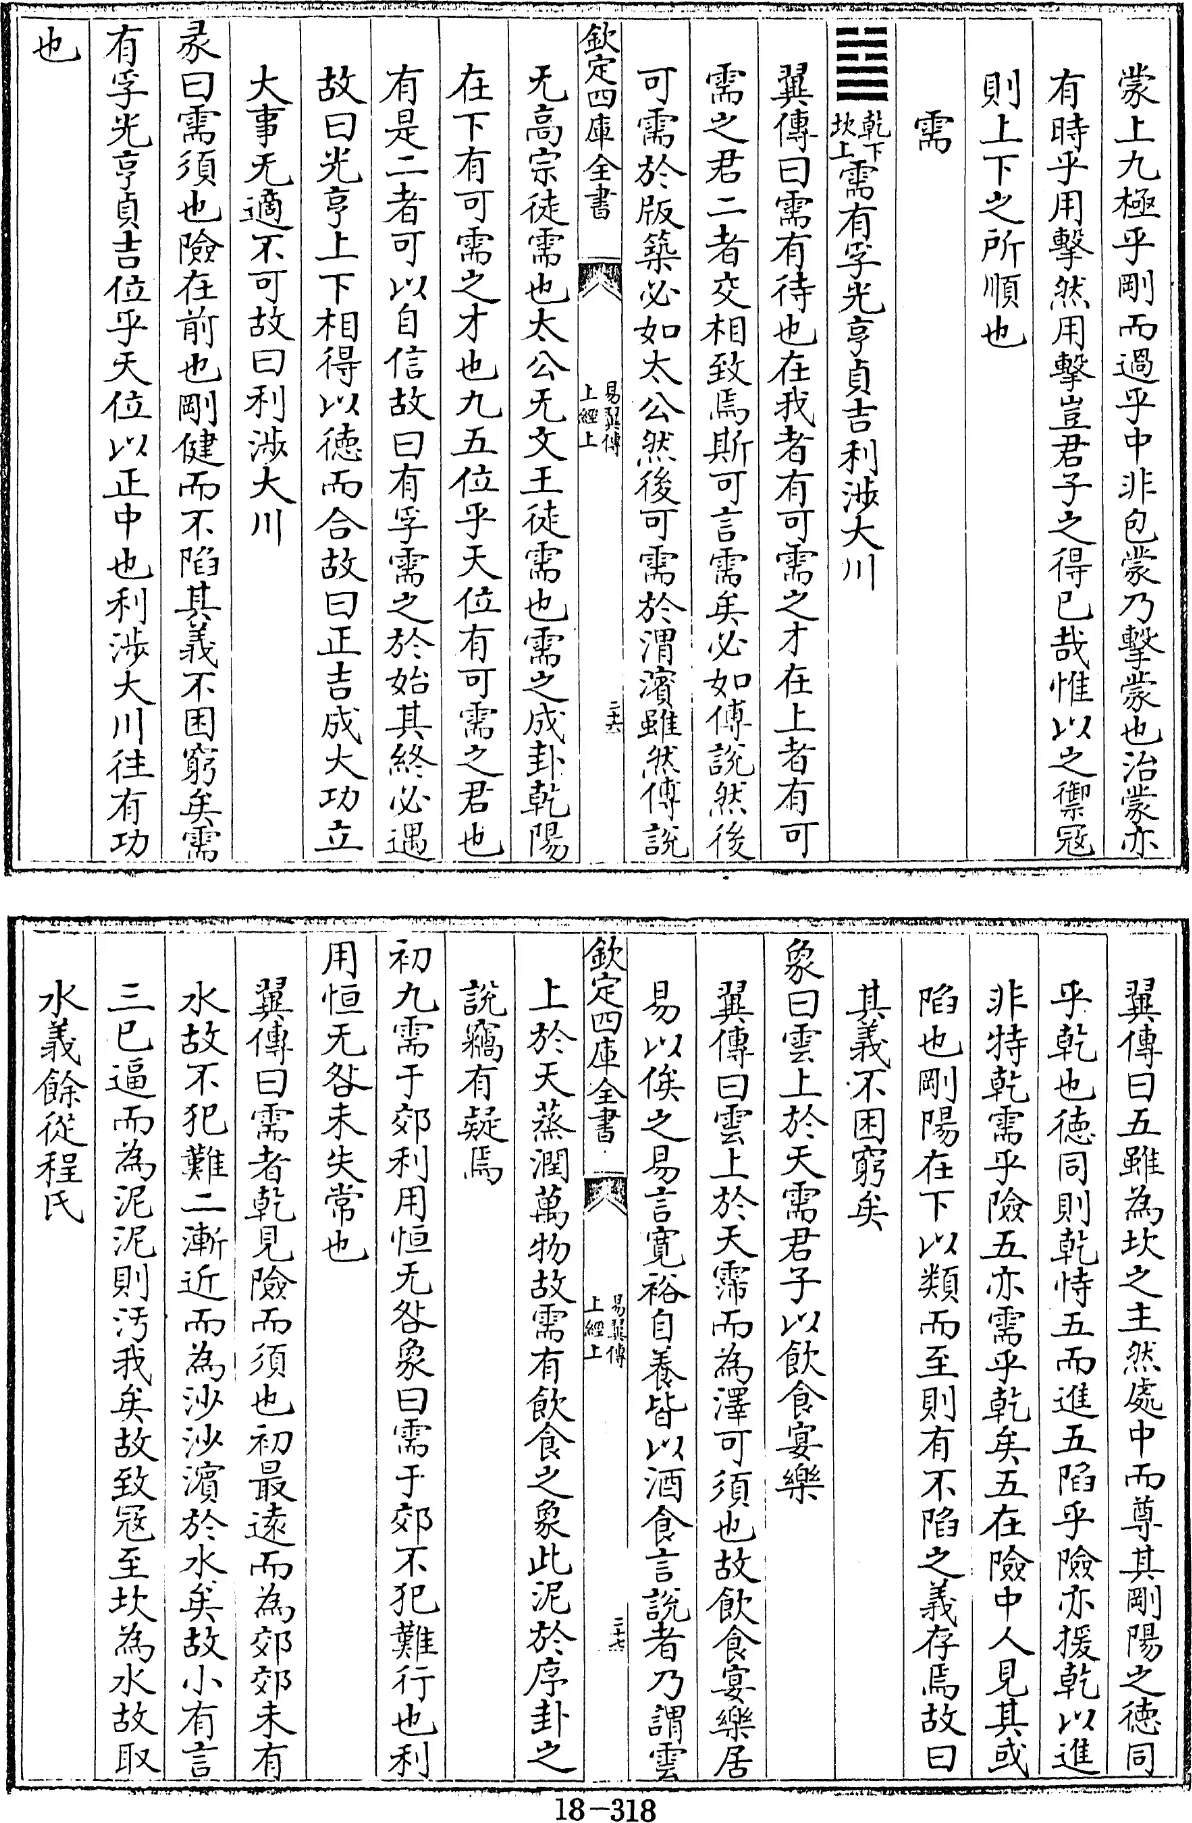 蒙上九極乎剛而過乎中非包蒙乃擊蒙也治蒙亦
有時乎用擊然用擊豈君子之得已哉惟以之禦冦
則上下之所順也
需
乾下坎上需有孚光亨貞吉利涉大川
翼傳曰需有待也在我者有可需之才在上者有可
需之君二者交相致焉斯可言需矣必如傅說然後
可需於版築必如太公然後可需於渭濱雖然傅說
欽定四庫全書 易翼傳上經上 二十六
无高宗徒需也太公无文王徒需也需之成卦乾陽
在下有可需之才也九五位乎天位有可需之君也
有是二者可以自信故曰有孚需之於始其終必遇
故曰光亨上下相得以徳而合故曰正吉成大功立
大事无適不可故曰利涉大川
彖曰需須也險在前也剛健而不陷其義不困窮矣需
有孚光亨貞吉位乎天位以正中也利涉大川往有功
也
翼傳曰五雖為坎之主然處中而尊其剛陽之徳同
乎乾也徳同則乾恃五而進五陷乎險亦援乾以進
非特乾需乎險五亦需乎乾矣五在險中人見其或
陷也剛陽在下以類而至則有不陷之義存焉故曰
其義不困窮矣
象曰雲上於天需君子以飲食宴樂
翼傳曰雲上於天霈而為澤可須也故飲食宴樂居
易以俟之易言寛裕自養皆以酒食言說者乃謂雲
欽定四庫全書 易翼傳上經上 二十七
上於天蒸潤萬物故需有飲食之象此泥於序卦之
說竊有疑焉
初九需于郊利用恒无咎象曰需于郊不犯難行也利
用恒无咎未失常也
翼傳曰需者乾見險而須也初最逺而為郊郊未有
水故不犯難二漸近而為沙沙濱於水矣故小有言
三已逼而為泥泥則汚我矣故致冦至坎為水故取
水義餘從程氏
18-318